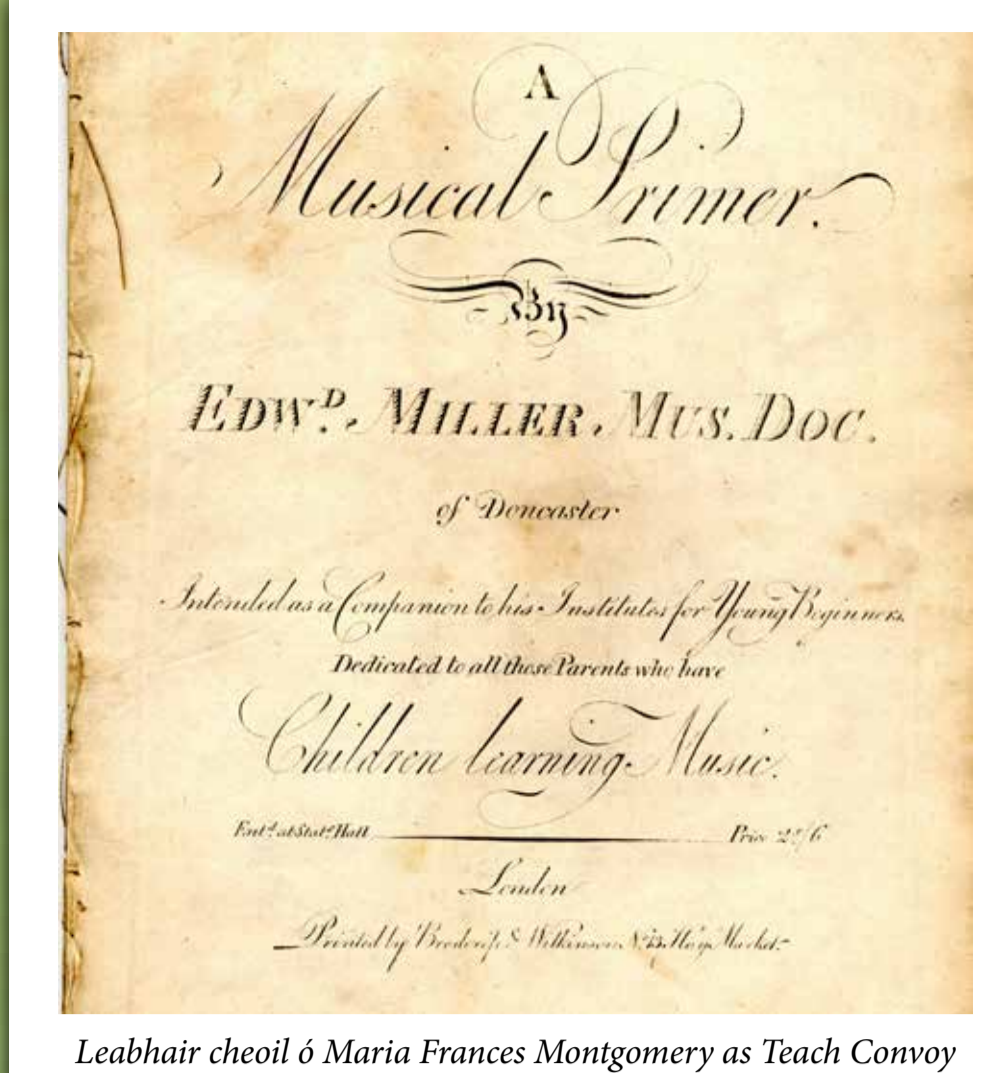 A
Musical Primer.
By
EDWD. MILLER. MUS. DOC.
of Doncaster
Intended as a Companion to his Institutes for Young Beginners.
Dedicated to all those Parents who have
Children learning Music.
Entd. at Stats. Hall Price 2s/6
London
Printed by Broderip & Wilkinson No. 13 Hay Market.
Leabhair cheoil ó Maria Frances Montgomery as Teach Convoy